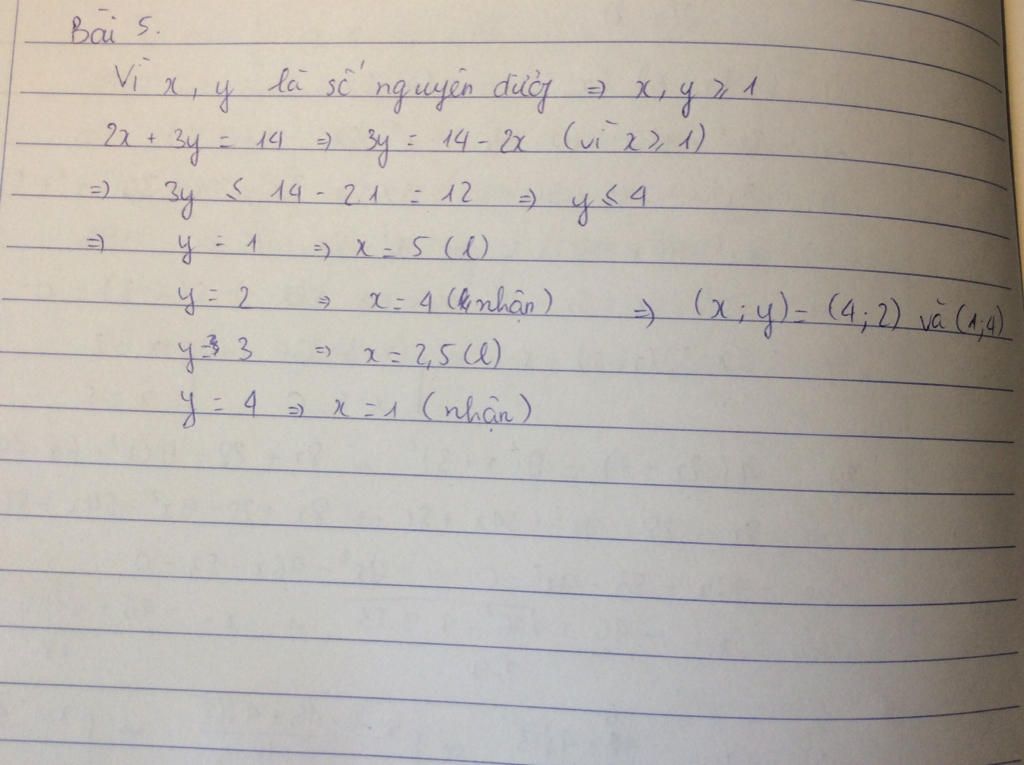 Bài 5.
Vì x, y là số nguyên dương => x, y ≥ 1
2x + 3y = 14 => 3y = 14 - 2x (vì x ≥ 1)
=> 3y ≤ 14 - 2.1 = 12 => y ≤ 4
=> y = 1 => x = 5 (l)
y = 2 => x = 4 (nhận) => (x; y) = (4; 2) và (1; 4)
y = 3 => x = 2,5 (l)
y = 4 => x = 1 (nhận)